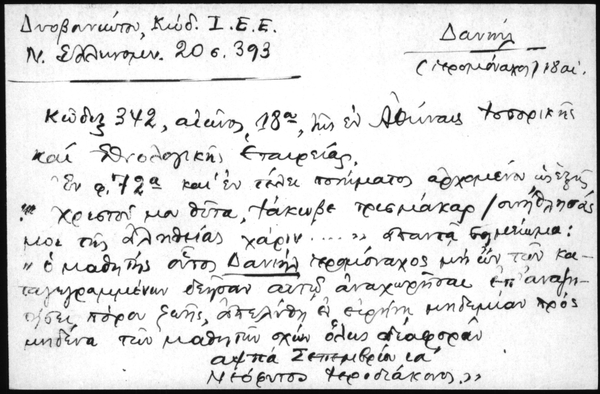 Δυοβουνιώτου, Κώδ. Ι.Ε.Ε.
Ν. Ἑλληνομν. 20 σ. 393
Δανιήλ
(ἱερομόναχος) 18 αἰ.
Κῶδιξ 342, αἰῶνος 18ου, τῆς ἐν Ἀθήναις Ἱστορικῆς
καί Ἐθνολογικῆς Ἑταιρείας.
Ἐν φ. 72α καί ἐν τέλει ποιήματος ἀρχομένου ὡς ἑξῆς
Χριστοῦ μου θῦτα, Ἰάκωβε τρισμάκαρ / συνήθλησάς
μοι τῆς ἀληθείας χάριν ....." ἀπαντᾷ σημείωμα:
"ὁ μαθητής οὗτος Δανιήλ ἱερομόναχος μή ὤν τῶν κα-
ταγεγραμμένων ἐδέησαν αὐτῷ ἀναχωρῆσαι ἐπ' ἀναζη-
τήσει πόρου ζωῆς, ἀπελύθη ἐν εἰρήνῃ μηδεμίαν πρός
μηδένα τῶν μαθητῶν σχών ὅλως διαφοράν
αψπά Σεπτεμβρίου ια'
Νεόφυτος Ἱεροδιάκονος."